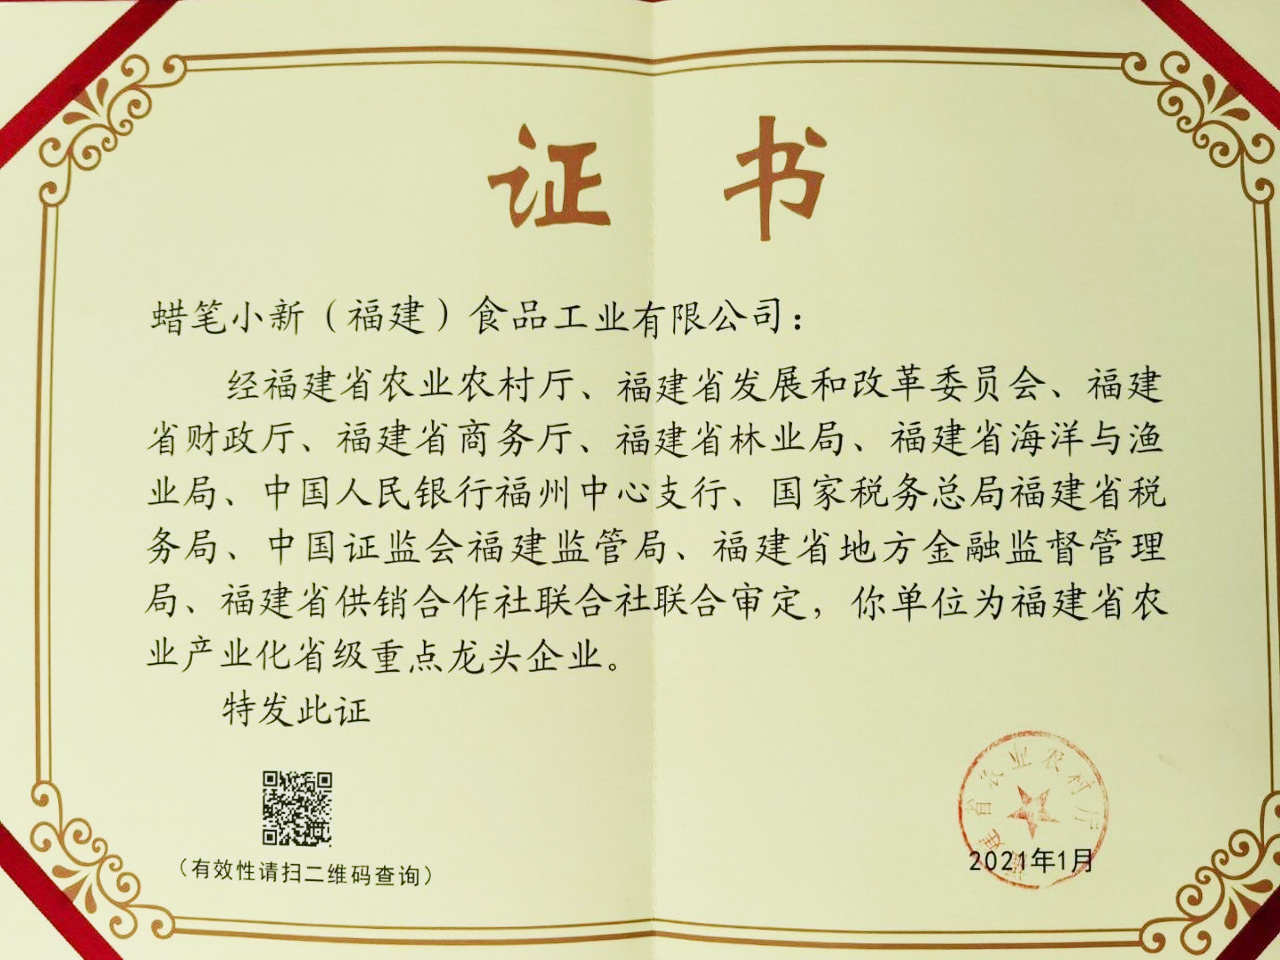 证书
蜡笔小新（福建）食品工业有限公司：
经福建省农业农村厅、福建省发展和改革委员会、福建
省财政厅、福建省商务厅、福建省林业局、福建省海洋与渔
业局、中国人民银行福州中心支行、国家税务总局福建省税
务局、中国证监会福建监管局、福建省地方金融监督管理
局、福建省供销合作社联合社联合审定，你单位为福建省农
业产业化省级重点龙头企业。
特发此证
（有效性请扫二维码查询）
福建省农业农村厅
2021年1月